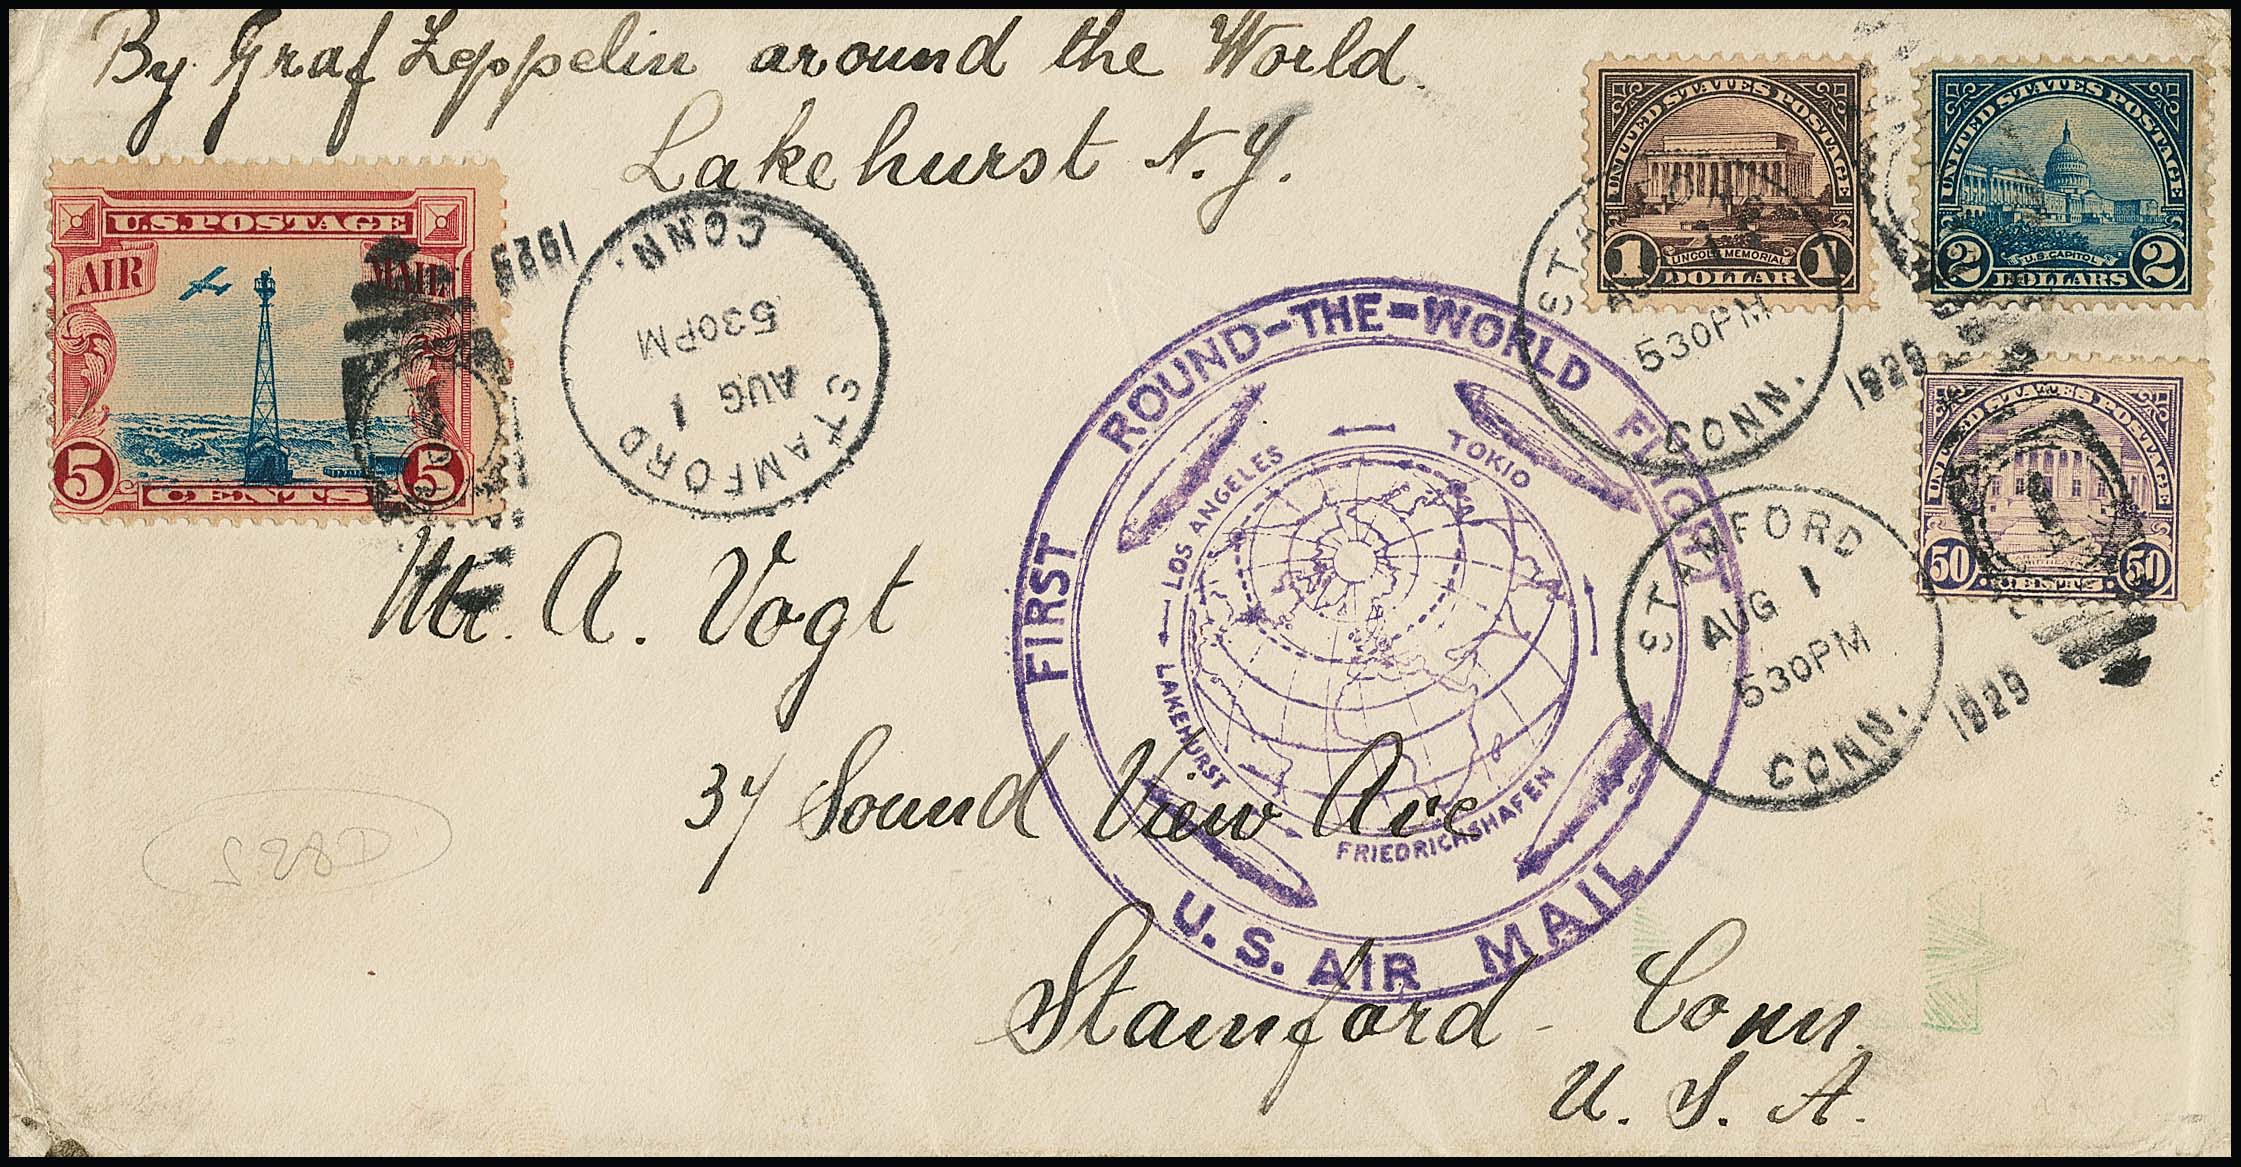 By Graf Zeppelin around the World
Lakehurst N.Y.
U.S. POSTAGE
AIR MAIL
5 CENTS 5
STAMFORD
AUG 1
530PM
CONN.
1929
UNITED STATES POSTAGE
LINCOLN MEMORIAL
1 DOLLAR 1
UNITED STATES POSTAGE
U.S. CAPITOL
2 DOLLARS 2
UNITED STATES POSTAGE
50 CENTS 50
530PM
CONN.
1929
STAMFORD
AUG 1
530PM
CONN.
1929
FIRST ROUND-THE-WORLD FLIGHT
LOS ANGELES
TOKIO
LAKEHURST
FRIEDRICHSHAFEN
U.S. AIR MAIL
Mr. A. Vogt
37 Sound View Ave
Stamford - Conn.
U. S. A.